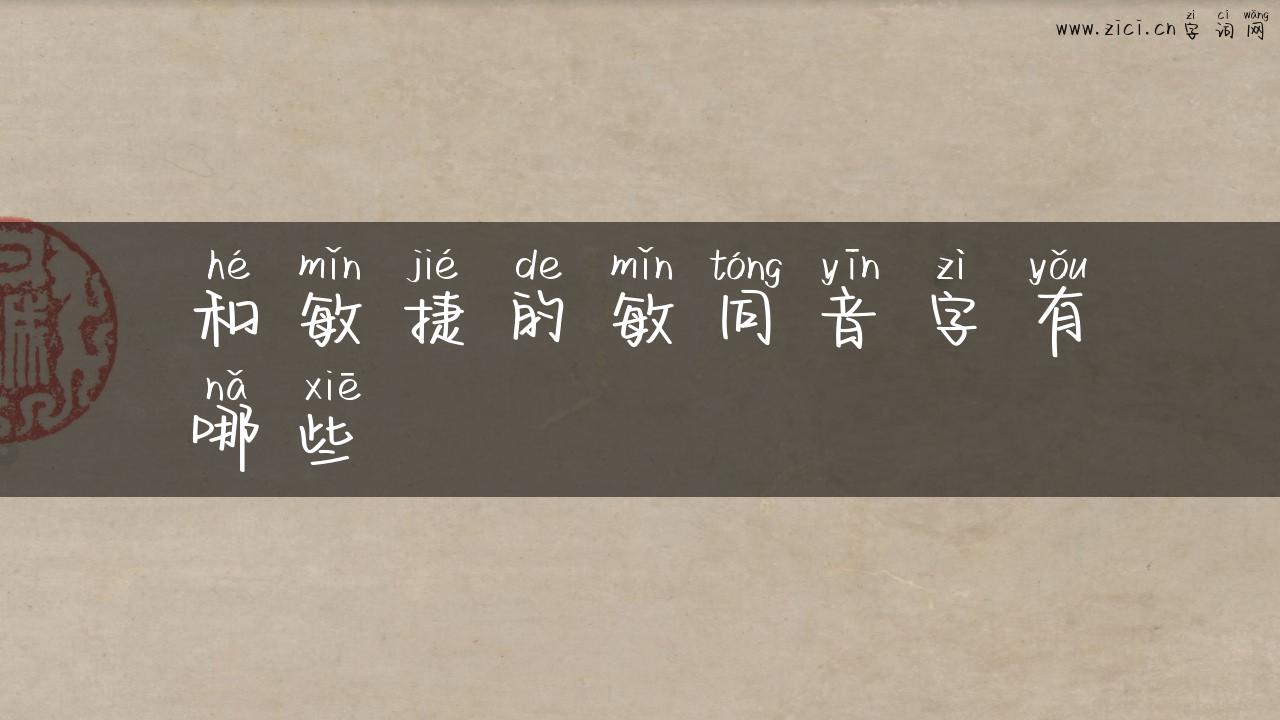 zì cí wǎng
www.zici.cn 字词网
hé mǐn jié de mǐn tóng yīn zì yǒu
和敏捷的敏同音字有
nǎ xiē
哪些